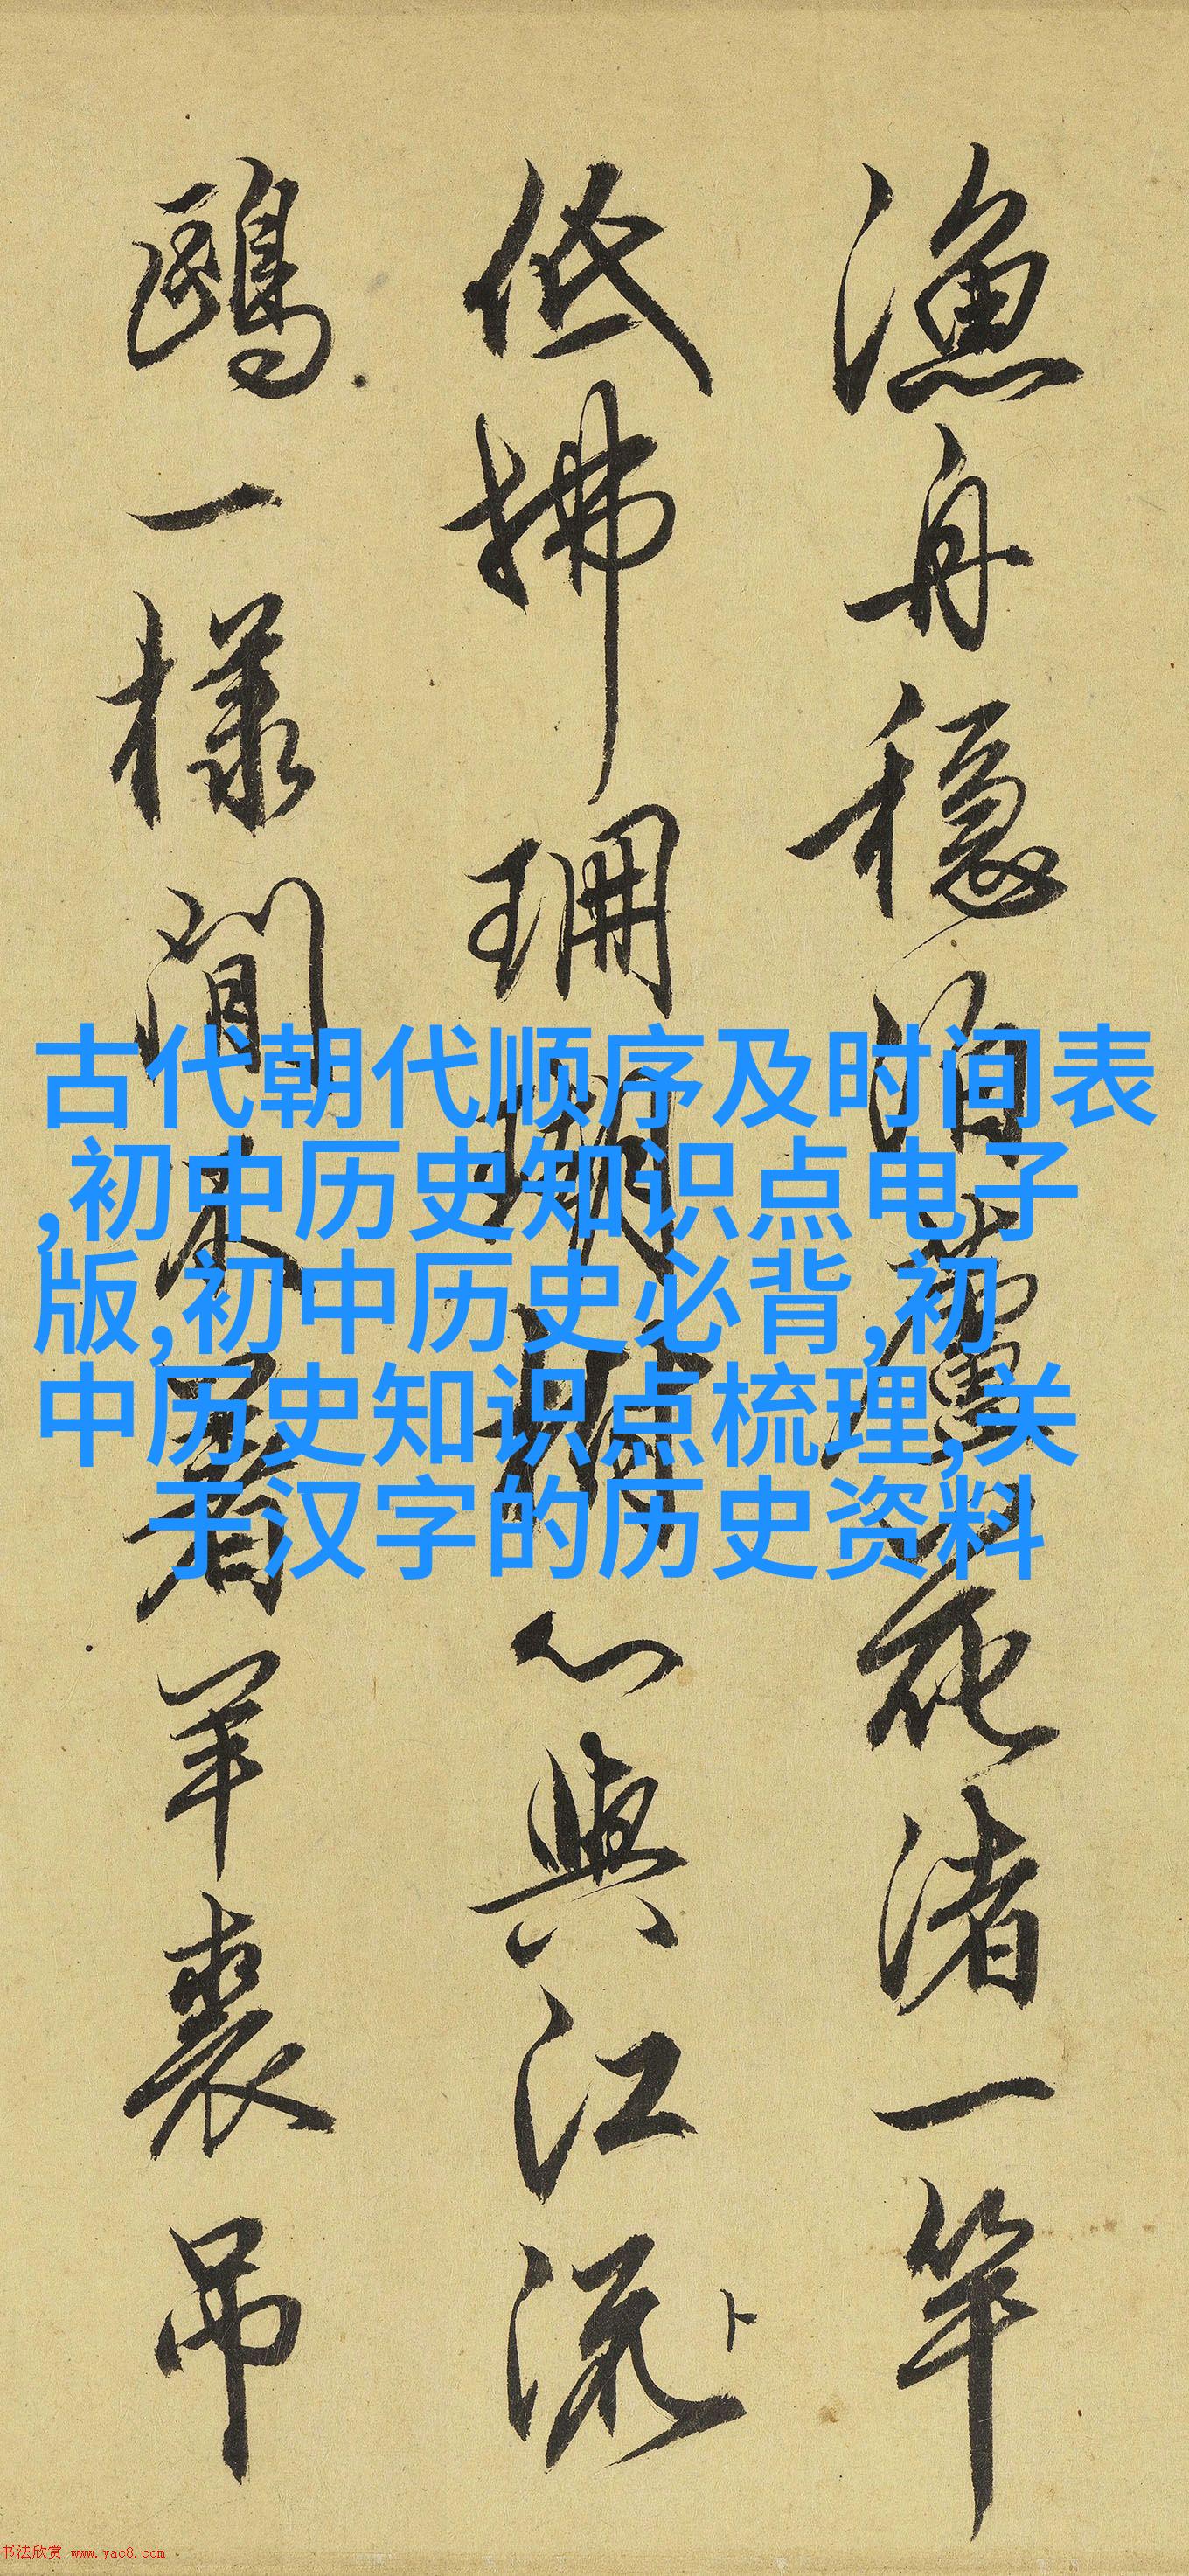 漁舟穩泊蘆花渚一竿
低拂珊瑚樹心與江流
鷗一樣閒未署羊裘吊
卜
古代朝代顺序及时间表
,初中历史知识点电子
版,初中历史必背,初
中历史知识点梳理,关
于汉字的历史资料
书法欣赏 www.yac8.com